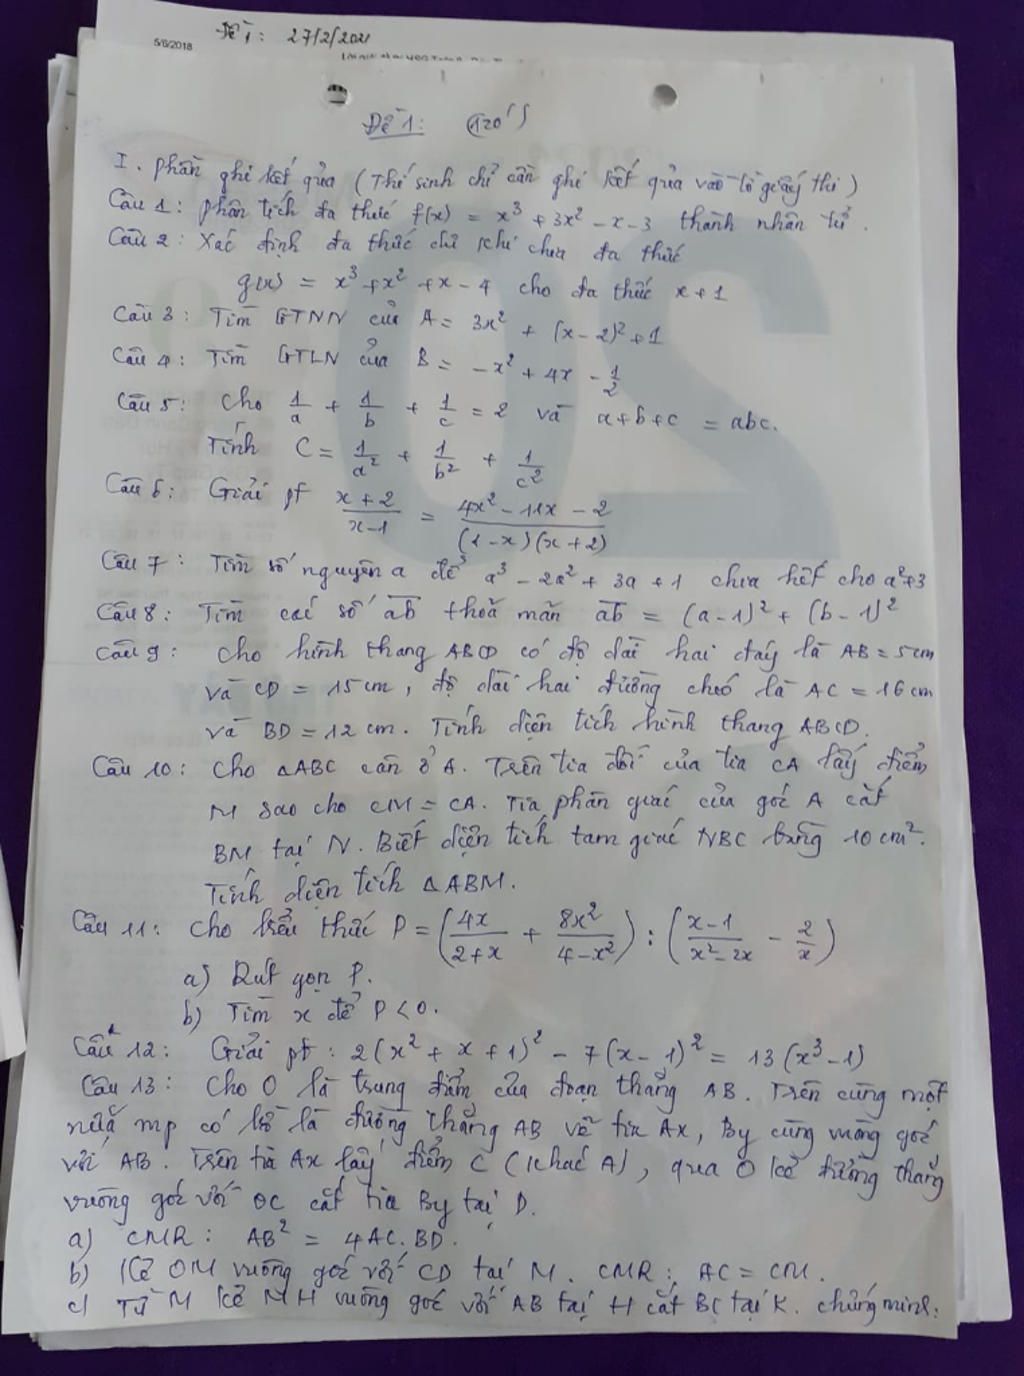 Đề 1: 27/2/2021
5/6/2018
Đề 1: (120')
I. Phần ghi kết quả (Thí sinh chỉ cần ghi kết quả vào tờ giấy thi)
Câu 1: Phân tích đa thức f(x) = x³ + 3x² - x - 3 thành nhân tử.
Câu 2: Xác định đa thức dư khi chia đa thức
g(x) = x³ + x² + x - 4 cho đa thức x + 1
Câu 3: Tìm GTNN của A = 3x² + (x - 2)² + 1
Câu 4: Tìm GTLN của B = -x² + 4x - 1/2
Câu 5: Cho 1/a + 1/b + 1/c = 2 và a + b + c = abc.
Tính C = 1/a² + 1/b² + 1/c²
Câu 6: Giải pt (x + 2)/(x - 1) = (4x² - 11x - 2)/((1 - x)(x + 2))
Câu 7: Tìm số nguyên a để a³ - 2a² + 3a + 1 chia hết cho a² + 3
Câu 8: Tìm các số ab thoả mãn ab = (a - 1)² + (b - 1)²
Câu 9: Cho hình thang ABCD có độ dài hai đáy là AB = 5cm
và CD = 15cm, độ dài hai đường chéo là AC = 16cm
và BD = 12 cm. Tính diện tích hình thang ABCD.
Câu 10: Cho △ABC cân ở A. Trên tia đối của tia CA lấy điểm
M sao cho CM = CA. Tia phân giác của góc A cắt
BM tại N. Biết diện tích tam giác NBC bằng 10 cm².
Tính diện tích △ABM.
Câu 11: Cho biểu thức P = (4x/(2+x) + 8x²/(4-x²)) : ((x-1)/(x²-2x) - 2/x)
a) Rút gọn P.
b) Tìm x để P < 0.
Câu 12: Giải pt: 2(x² + x + 1)² - 7(x - 1)² = 13(x³ - 1)
Câu 13: Cho O là trung điểm của đoạn thẳng AB. Trên cùng một
nửa mp có bờ là đường thẳng AB vẽ tia Ax, By cùng vuông góc
với AB. Trên tia Ax lấy điểm C (khác A), qua O kẻ đường thẳng
vuông góc với OC cắt tia By tại D.
a) CMR: AB² = 4AC.BD.
b) Kẻ OM vuông góc với CD tại M. CMR: AC = CM.
c) Từ M kẻ MH vuông góc với AB tại H cắt BC tại K. Chứng minh: